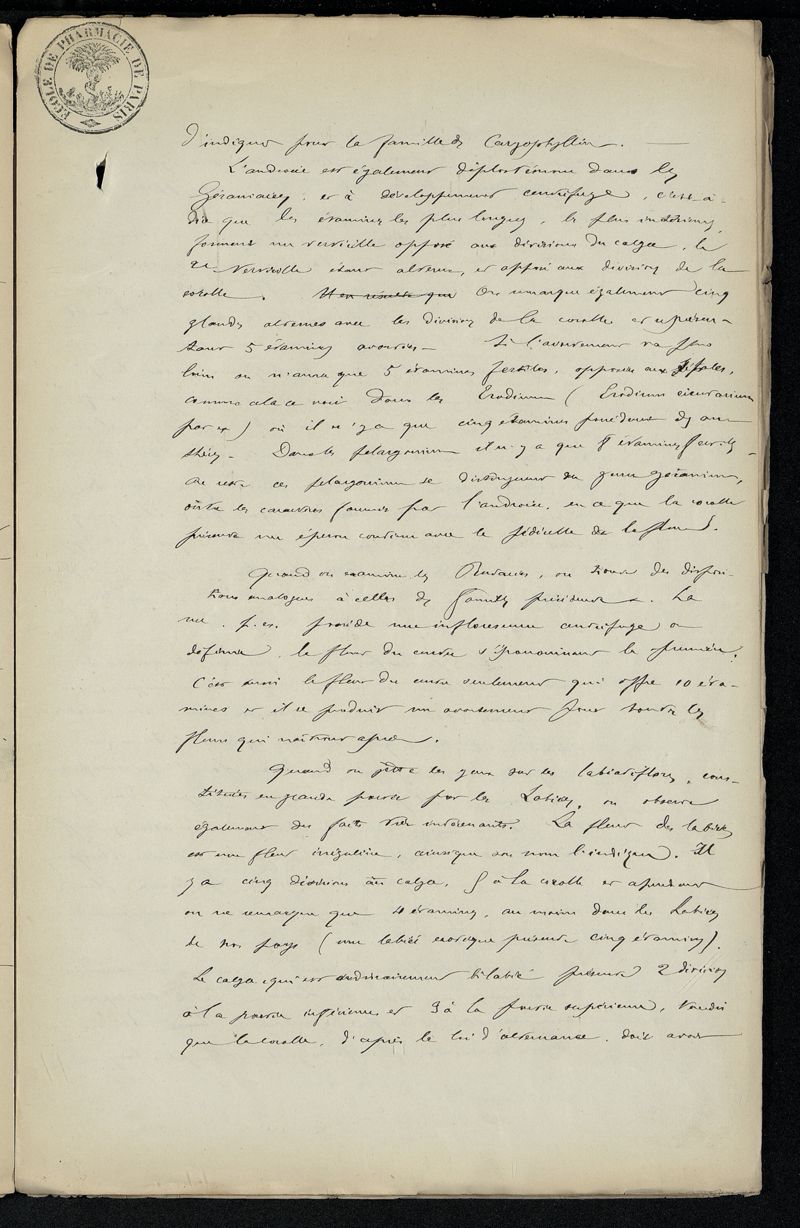 ECOLE DE PHARMACIE DE PARIS
d'indiquer pour la famille des Caryophyllées. —
L'androcée est également diplostémone dans les
Géraniacées, et à développement centrifuge, c'est à
dire que les étamines les plus longues, les plus intérieures,
forment un verticille opposé aux divisions du calyce, le
2e verticille étant alterne, et opposé aux divisions de la
corolle. Il en résulte que On remarque également cinq
glandes alternes avec les divisions de la corolle et représen-
tant 5 étamines avortées — Si l'avortement va plus
loin on n'aura que 5 étamines fertiles, opposées aux sépales,
comme cela se voit dans les Erodium (Erodium cicutarium
par ex) où il n'y a que cinq étamines possédant des an-
thères — Dans les pelargonium il n'y a que étamines fertiles —
Du reste ces pelargonium se distinguent du genre geranium,
outre les caractères fournis par l'androcée, en ce que la corolle
présente un éperon continu avec le pédicelle de la fleur.
Quand on examine les Rutacées, on trouve des disposi-
tions analogues à celles des familles précédentes. La
rue, p. ex. possède une inflorescence centrifuge ou
définie, la fleur du centre s'épanouissant la première.
C'est aussi la fleur du centre seulement qui offre 10 éta-
mines et il se produit un avortement pour toutes les
fleurs qui naîtront après.
Quand on jette les yeux sur les labiatiflores, cons-
tituées en grande partie par les Labiées, on observe
également des faits très intéressants. La fleur des labiées
est une fleur irrégulière, ainsi que son nom l'indique. Il
y a cinq divisions au calyce, 5 à la corolle et cependant
on ne remarque que 4 étamines, au moins dans les Labiées
de nos pays (une labiée exotique présente cinq étamines).
Le calyce qui est ordinairement bilabié présente 2 divisions
à la partie inférieure et 3 à la partie supérieure, tandis
que la corolle, d'après la loi d'alternance, doit avoir